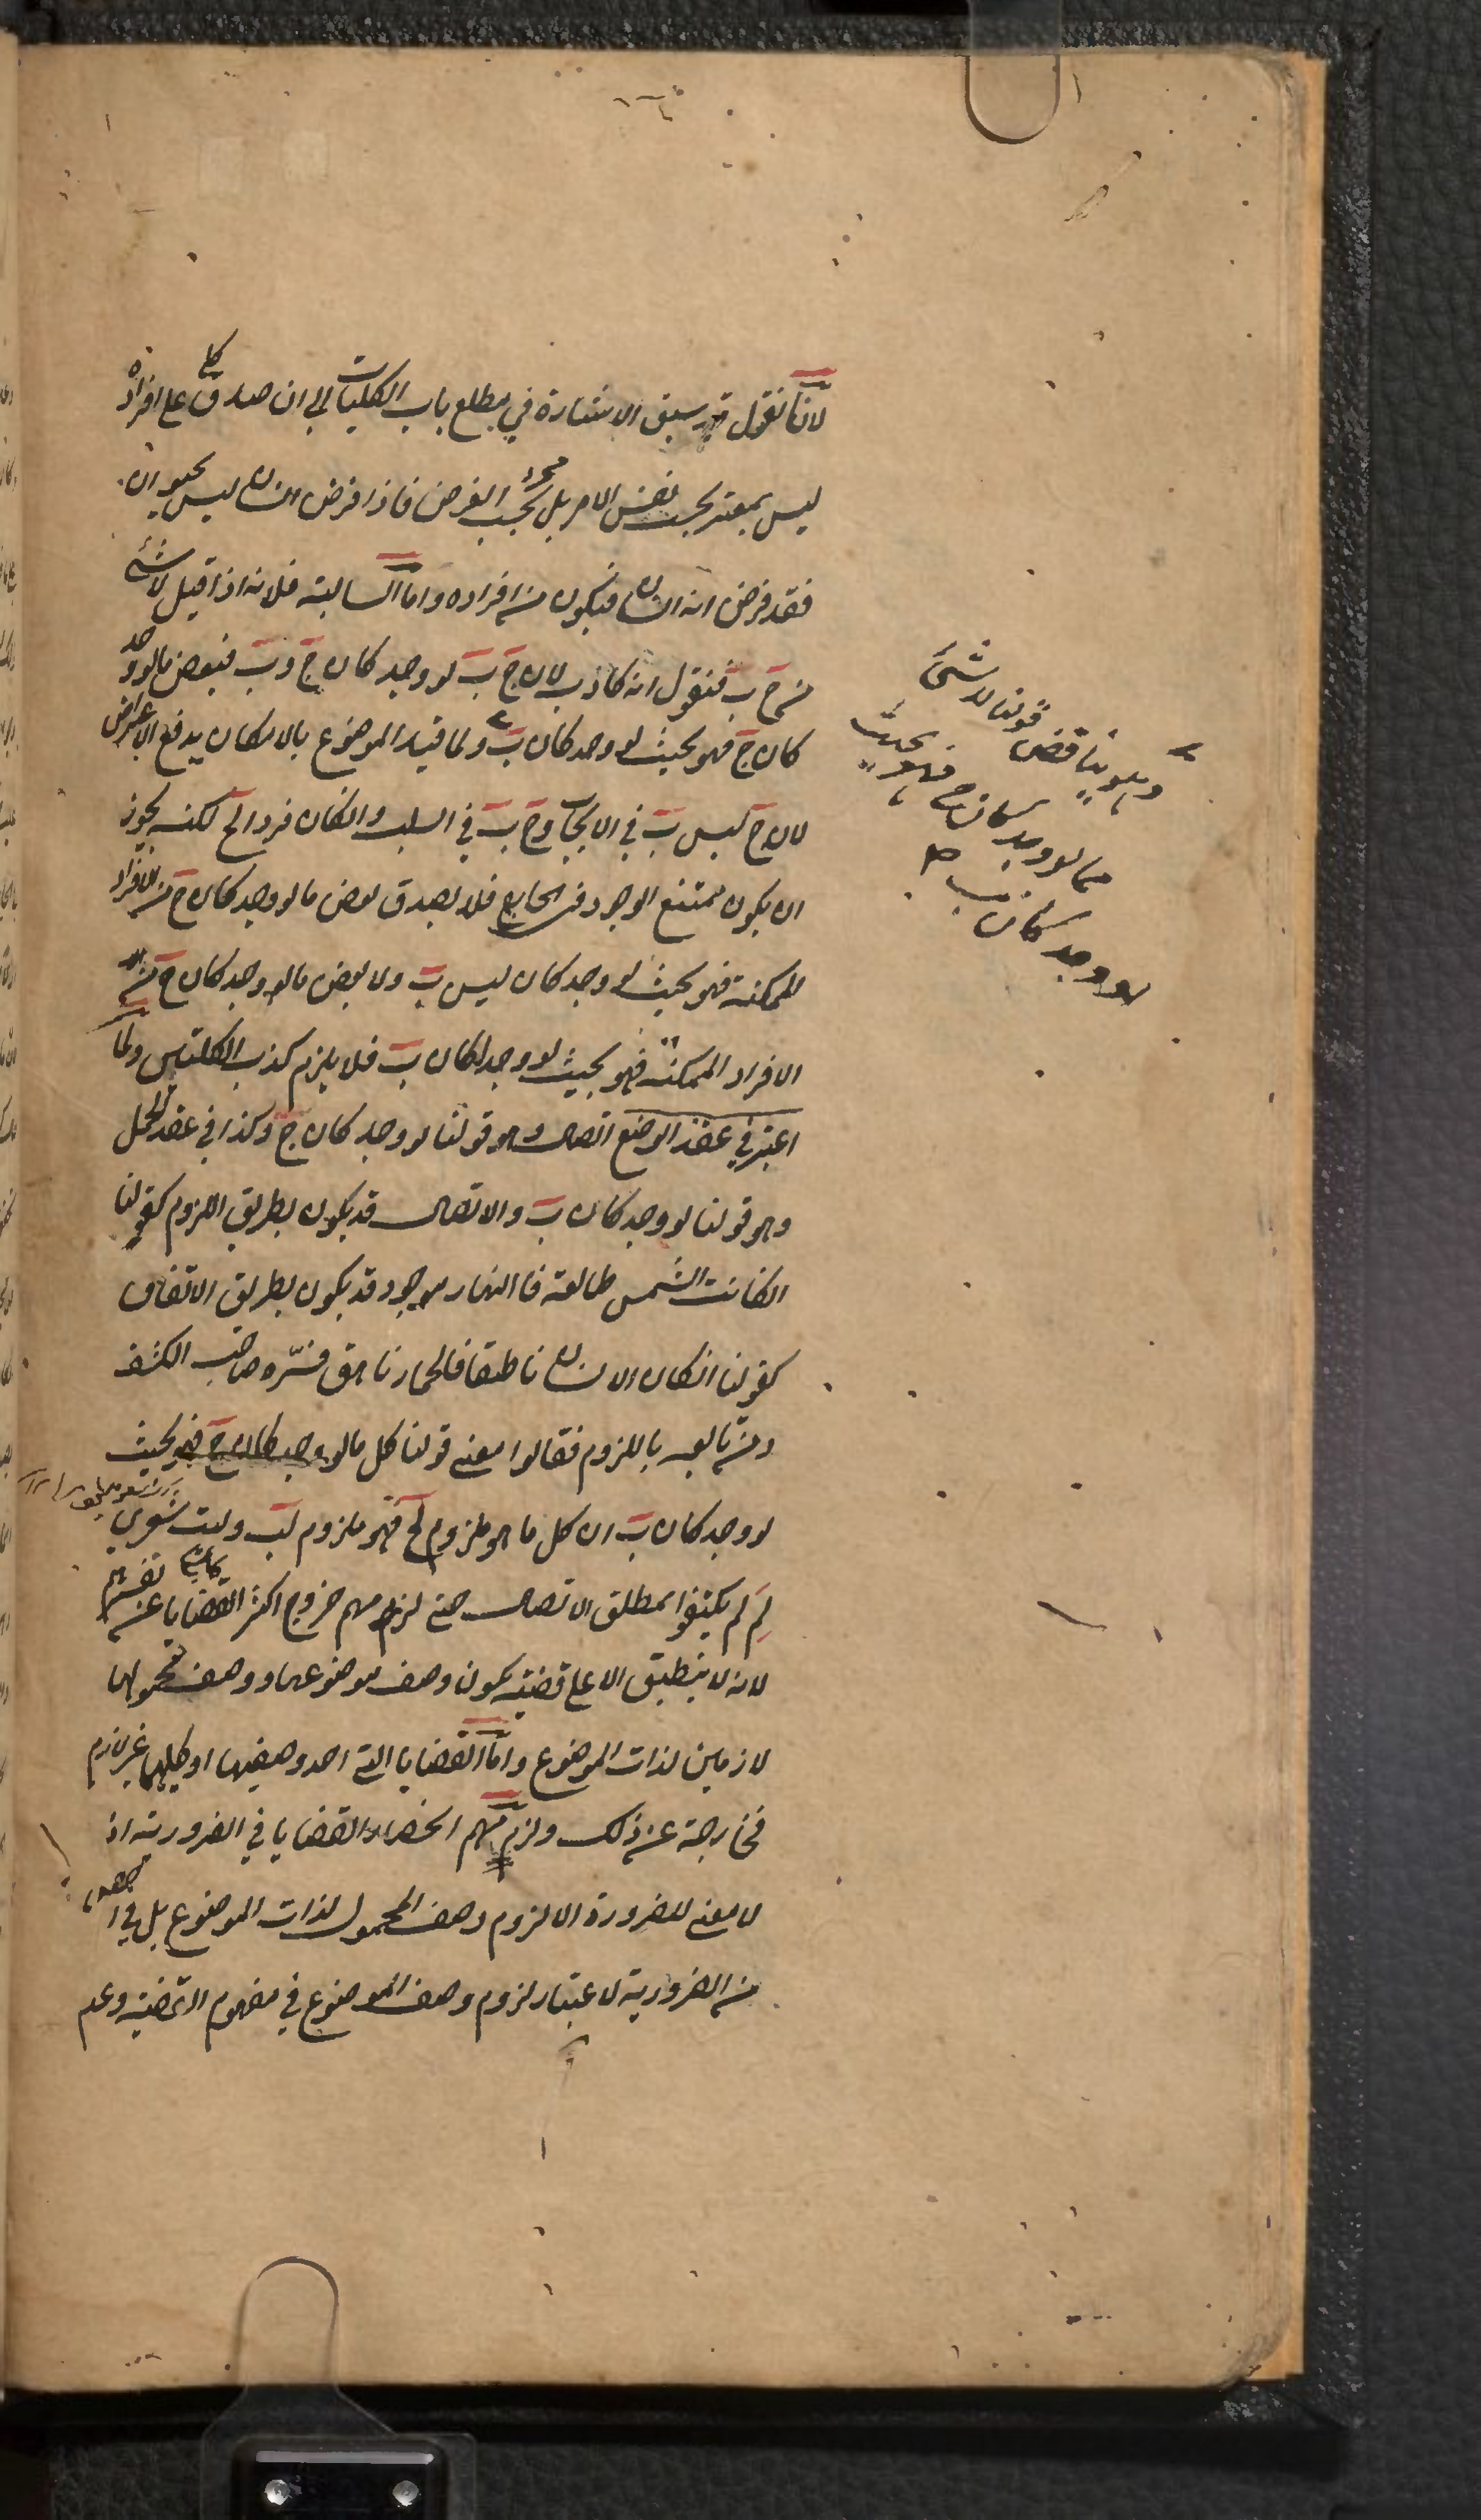 لانا نقول قد سبق الاشارة في مطلع باب الكليات الى ان صدق الكلي على افراده
ليس بمعتبر بحسب نفس الامر بل بحسب مجرد الفرض فاذا فرض انسان ليس بحيوان
فقد فرض انه انسان فيكون من افراده واما السالبة فلانه اذا قيل لا شئ
من ج ب فنقول انه كاذب لان ج ب لو وجد كان ج و ب فبعض ما لو وجد
كان ج فهو بحيث لو وجد كان ب ولما قيد الموضوع بالامكان يدفع الاعتراض
لان ج ليس ب في الايجاب و ج ب في السلب وان كان فردا لج لكنه يجوز
ان يكون ممتنع الوجود في الخارج فلا يصدق بعض ما لو وجد كان ج من الافراد
الممكنة فهو بحيث لو وجد كان ليس ب ولا بعض ما لو وجد كان ج من
الافراد الممكنة فهو بحيث لو وجد لكان ب فلا يلزم كذب الكليتين ولما
اعتبر في عقد الوضع اتصال وهو قولنا لو وجد كان ج وكذا في عقد الحمل
وهو قولنا لو وجد كان ب والاتصال قد يكون بطريق اللزوم كقولنا
ان كانت الشمس طالعة فالنهار موجود قد يكون بطريق الاتفاق
كقولنا ان كان الانسان ناطقا فالحمار ناهق فسّره صاحب الكشف
ومن تابعه باللزوم فقالوا معنى قولنا كل ما لو وجد كان ج فهو بحيث
لو وجد كان ب ان كل ما هو ملزوم لج فهو ملزوم لب وليت شعري
لِمَ لم يكتفوا بمطلق الاتصال حتى لزمهم خروج اكثر القضايا عن تفسيرهم
لانه لا ينطبق الا على قضية يكون وصف موضوعها ووصف محمولها
لازمين لذات الموضوع واما القضايا التي احد وصفيها او كليهما غير لازم
فخارجة عن ذلك ولزمهم انحصار القضايا في الضرورية اذ
لا معنى للضرورة الا لزوم وصف المحمول لذات الموضوع بل في اخص
من الضرورية لاعتبار لزوم وصف الموضوع في مفهوم القضية وعدم
وهو يناقض قولنا لا شئ
مما لو وجد كان ج فهو بحيث
لو وجد كان ب